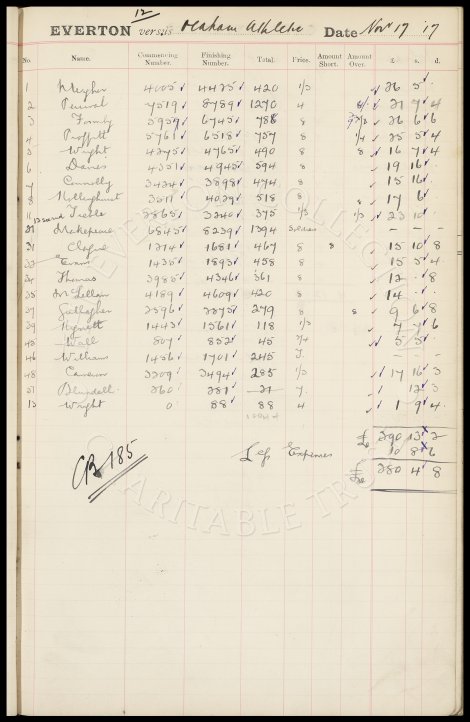 12
EVERTON versus Oldham Athletic Date Nov 17 '17
No. Name. Commencing Number. Finishing Number. Total. Price. Amount Short. Amount Over. £ s. d.
1 Meagher 4005 4425 420 1/3 26 5
2 Percival 7519 8789 1270 4 21 7 4
3 5959 6745 786 8 26 6 6
4 Proffitt 5761 6518 757 8 1/4 25 5 4
5 Wright 4275 4765 490 8 8 16 7 4
6 Davies 4351 4945 594 8 19 16
7 Connolly 3424 3898 474 8 15 16
8 3511 4029 518 8 17 6
2865 3240 375 1/3 23 10
Makepeace 6845 8239 1394
31 Clague 1214 1681 467 8 8 15 10 8
Evans 1435 1893 458 8 15 5 4
34 Thomas 3985 4346 361 8 12 8
35 McLellan 4189 4609 420 8 14
37 Gallagher 2596 2875 279 8 8 9 6 8
39 Hignett 1443 1561 118 1/3 7 7 6
45 Wall 807 852 45 2/4 5 5
46 Witham 1456 1701 245
48 Cameron 3209 3494 285 1/3 17 16 3
Blundell 260 281 21
13 Wright 0 88 88 4 1 9 4
£ 290 13 2
Less Expenses 10 8 6
£ 280 4 8
CB 185
EVERTON COLLECTION
CHARITABLE TRUST